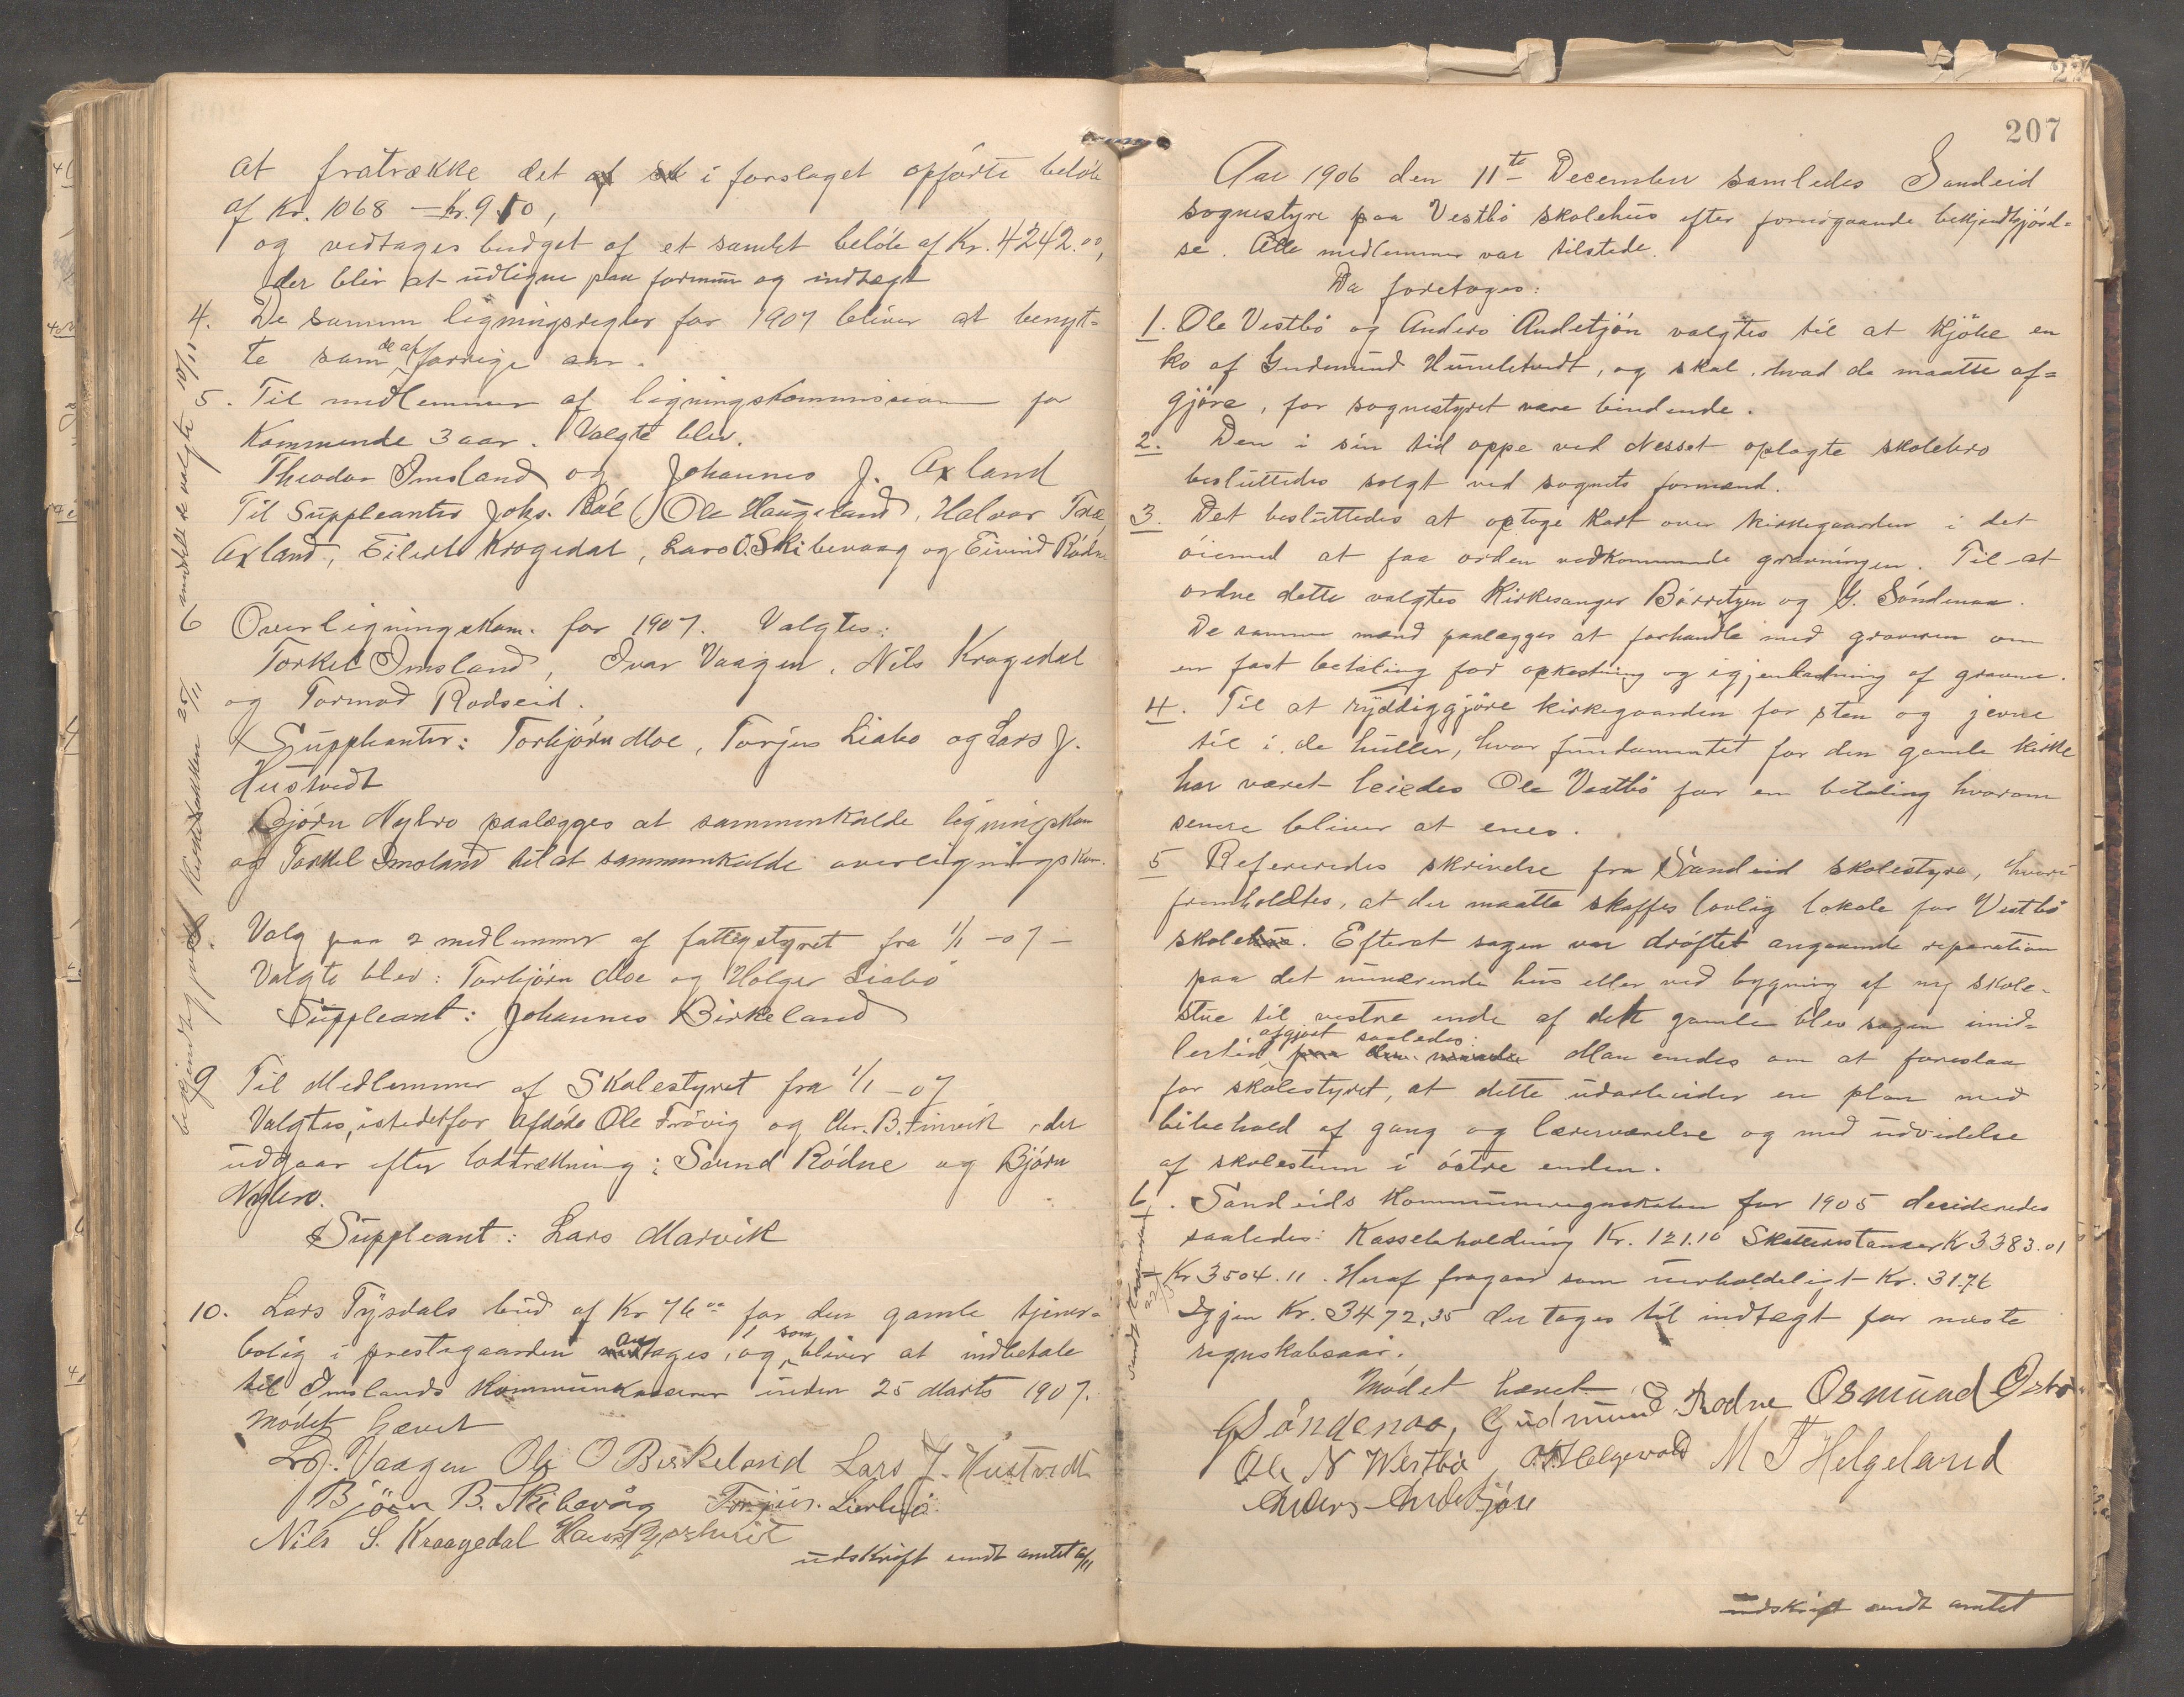 at fratrække det i forslaget opførte beløb
af Kr. 1068 – Kr. 950,
og vedtages budget af et samlet beløb af Kr. 4242.00,
der blir at udligne paa formue og indtægt
4. De samme ligningsregler for 1907 bliver at benyt-
te som de af forrige aar.
5. Til medlemmer af ligningskommissionen for
kommende 3 aar. Valgte blev.
Theodor Imsland og Johannes J. Axland
Til Suppleanter Johs. Ole Haugeland, Halvor
Axland, Eilert Kragedal, Lars O. Skibevaag og Eivind Rødne
6 Overligningskom. for 1907. Valgtes:
Torkel Imsland, Ivar Vaagen, Nils Kragedal
og Tormod Rodseid.
Suppleanter: Torbjørn Moe, Torjus Liabø og Lars J.
Hustvedt
Bjørn Nybro paalægges at sammenkalde ligningskom
og Torkel Imsland til at sammenkalde overligningskom.
8. Valg paa 2 medlemmer af fattigstyret fra 1/1 -07-
Valgte blev: Torbjørn Moe og Holger Liabø
Suppleant: Johannes Birkeland
9 Til Medlemmer af Skolestyret fra 1/1 -07
Valgtes, istedetfor afdøde Ole Trøvig og Chr. B. Finvik, der
udgaar efter lodtrækning: Søund Rødne og Bjørn
Nybro.
Suppleant: Lars Marvik
10. Lars Tysdals bud af Kr 76 00 for den gamle tjener-
bolig i prestegaarden antages, og som bliver at indbetale
til Imslands Kommunekasserer inden 25 Marts 1907.
Mødet hævet
L. J. Vaagen Ole O Birkeland Lars J. Hustvedt
Bjørn B. Skibevåg Torjus. Lierbø
Nils S. Kraagedal
udskrift sendt amtet 6/11
207
Aar 1906 den 11te December samledes Sandeid
sognestyre paa Vestbø skolehus efter forudgaaende bekjendtgjørel-
se. Alle medlemmer var tilstede.
Da foretoges:
1. Ole Vestbø og Anders Andetjøn valgtes til at kjøbe en
ko af Gudmund Humletvedt, og skal, hvad de maatte af=
gjøre, for sognestyret være bindende.
2. Den i sin tid oppe ved Nesset oplagte skolebro
besluttedes solgt ved sognets formand.
3. Det besluttedes at optage kart over kirkegaarden i det
øiemed at faa orden vedkommende gravningen. Til at
ordne dette valgtes Kirkesanger Børretzen og G. Søndenaa.
De samme mænd paalægges at forhandle med graveren om
en fast betaling for opkastning og igjenkastning af gravene.
4. Til at ryddiggjøre kirkegaarden for sten og jevne
til i de huller, hvor fundamentet for den gamle kirke
har været leiedes Ole Vestbø for en betaling hvorom
senere bliver at enes.
5 Refereredes skrivelse fra Sandeid skolestyre, hvori
fremholdtes, at der maatte skaffes lovlig lokale for Vestbø
skole. Efterat sagen var drøftet angaaende reparation
paa det nuværende hus eller ved bygning af ny skole-
stue til vestre ende af det gamle blev sagen imid-
lertid afgjort saaledes: Man enedes om at foreslaa
for skolestyret, at dette udarbeider en plan med
bibehold af gang og lærerværelse og med udvidelse
af skolestuen i østre enden.
6. Sandeids Kommuneregnskaber for 1905 desideredes
saaledes: Kassebeholdning Kr. 121.10 Skatterestanser Kr 3383.01
Kr 3504.11. Heraf fragaar som uerholdeligt Kr. 31.76
Igjen Kr. 3472,35 der tages til indtægt for næste
regnskabsaar.
Mødet hævet
G Søndenaa, Gudmund Rodne Osmund Østbø
Ole N Westbø O H Helgevold M T Helgeland
Anders Andetjøn
udskrift sendt amtet